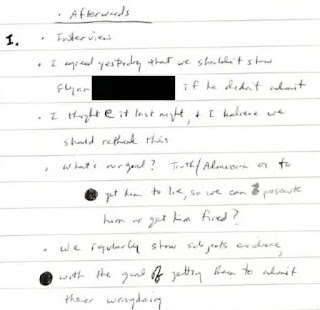 • Afterwards
I. • Interview
• I agreed yesterday that we shouldn't show
Flynn if he didn't admit
• I thought @ it last night, + I believe we
should rethink this
• What is our goal? Truth/Admission or to
get him to lie, so we can prosecute
him or get him fired?
• We regularly show subjects evidence,
with the goal of getting them to admit
their wrongdoing